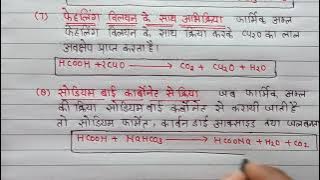 (7) फेहलिंग विलयन के साथ अभिक्रिया फार्मिक अम्ल
फेहलिंग विलयन के साथ क्रिया करके Cu2O का लाल
अवक्षेप प्राप्त करता है।
HCOOH + 2CuO → CO2 + Cu2O + H2O
(8) सोडियम बाई कार्बोनेट से क्रिया जब फार्मिक अम्ल
की क्रिया सोडियम बाई कार्बोनेट से करायी जाती है
तो सोडियम फार्मेट, कार्बन डाई आक्साइड तथा जल
HCOOH + NaHCO3 → HCOONa + H2O + CO2